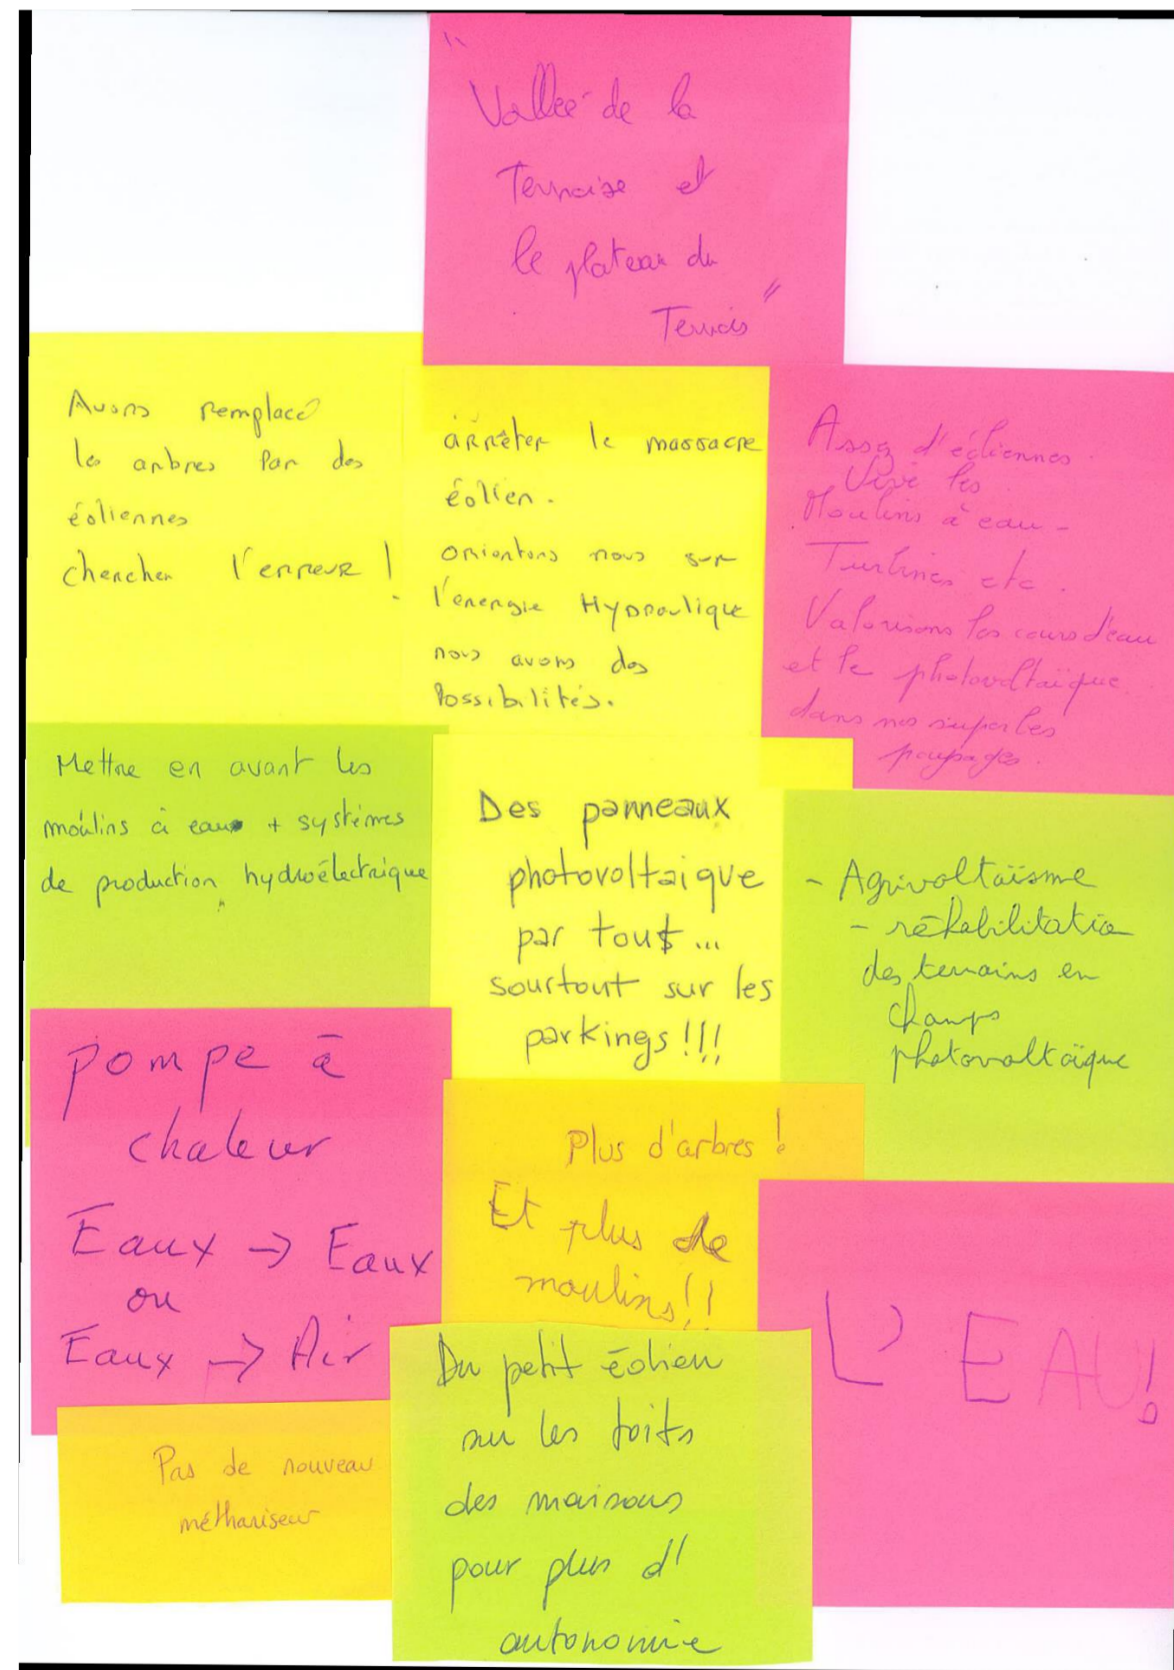 "
Vallée de la
Ternoise et
le plateau du
Ternois"
Avons remplacé
les arbres par des
éoliennes
chercher l'erreur !
arrêter le massacre
éolien.
orientons nous sur
l'énergie Hydraulique
nous avons des
Possibilités.
Assez d'éoliennes.
Vive les
Moulins à eau -
Turbines etc.
Valorisons les cours d'eau
et le photovoltaïque
dans nos superbes
paysages.
Mettre en avant les
moulins à eau + systèmes
de production hydroélectrique
Des panneaux
photovoltaique
par tout...
sourtout sur les
parkings !!!
- Agrivoltaïsme
- réhabilitation
des terrains en
champs
photovoltaïque
pompe à
chaleur
Eaux → Eaux
ou
Eaux → Air
Plus d'arbres !
Et plus de
moulins !!
L'EAU !
Pas de nouveau
méthaniseur
Du petit éolien
sur les toits
des maisons
pour plus d'
autonomie